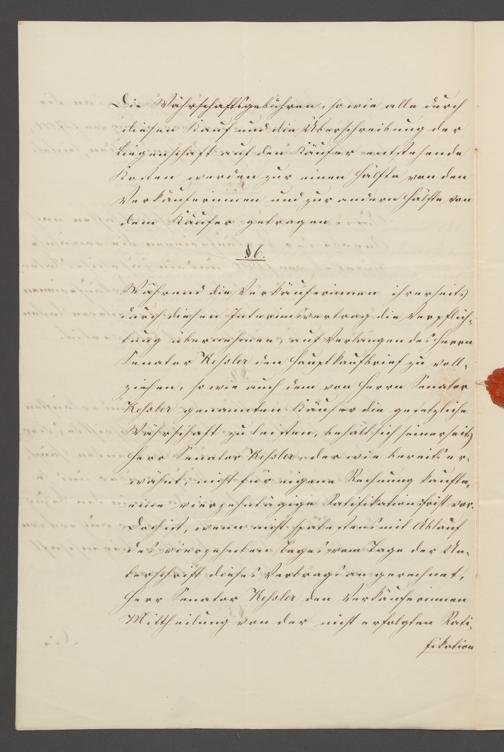 Die Währschaftsgebühren, so wie alle durch
diesen Kauf und die Überschreibung der
Liegenschaft auf den Käufer entstehende
Kosten werden zur einen Hälfte von den
Verkäuferinnen und zur andern Hälfte von
dem Käufer getragen.
§ 6.
Während die Verkäuferinnen ihrerseits
durch diesen Interimsvertrag die Verpflich-
tung übernehmen, auf Verlangen des Herrn
Senator Kessler den Hauptkaufbrief zu voll-
ziehen, so wie auch dem von Herrn Senator
Kessler genannten Käufer die gesetzliche
Währschaft zu leisten, behält sich seinerseits
Herr Senator Kessler, der wie bereits er-
wähnt, nicht für eigene Rechnung kaufte,
eine vierzehntägige Ratifikationsfrist vor.
Dergestalt, wenn nicht spätestens mit Ablauf
des vierzehnten Tages vom Tage der Un-
terschrift dieses Vertrags an gerechnet,
Herr Senator Kessler den Verkäuferinnen
Mittheilung von der nicht erfolgten Rati-
fikation